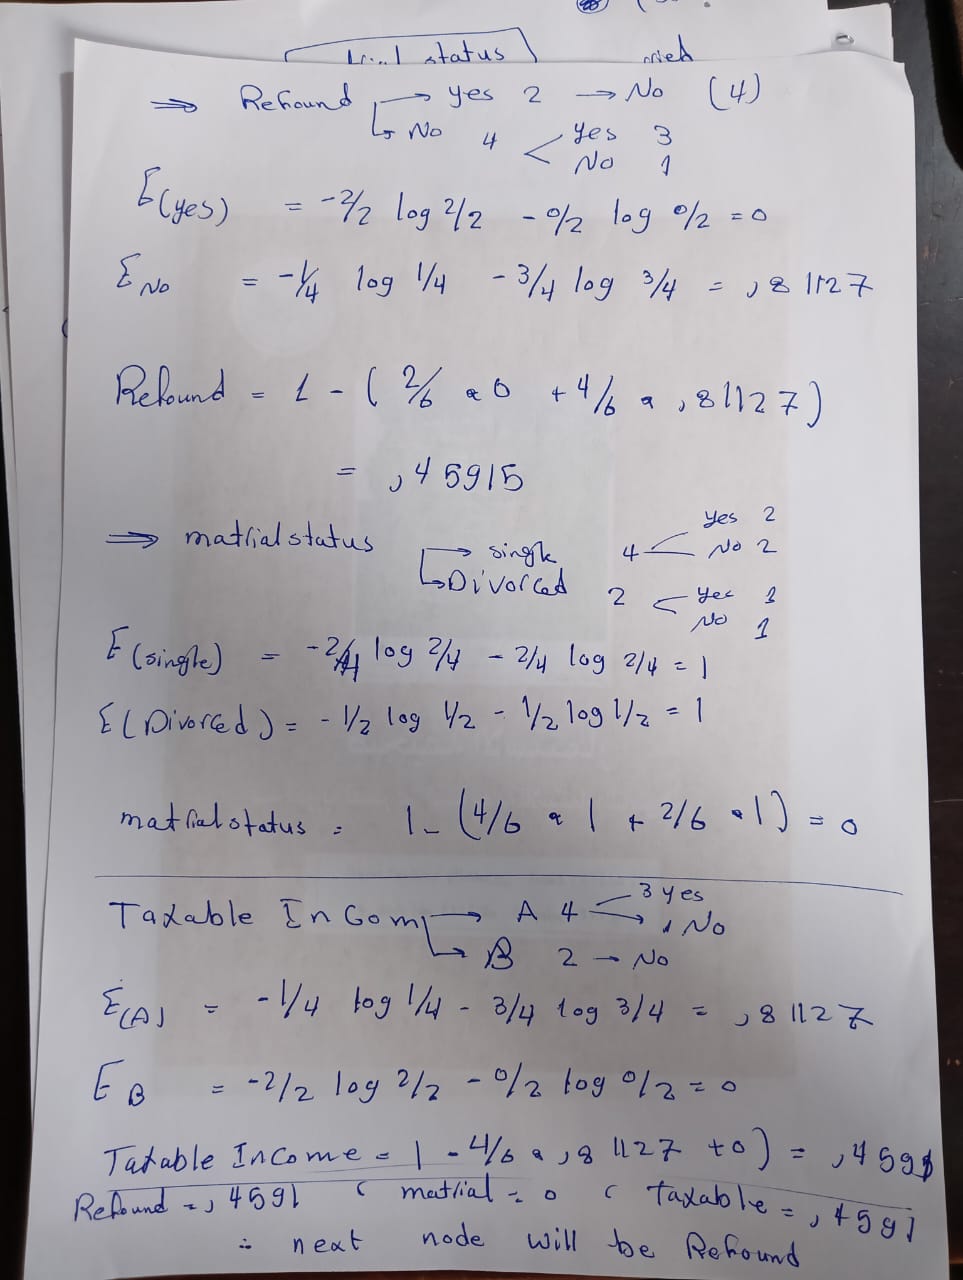 status
ried
⇒ Refound → yes 2 → No (4)
↳ No 4 < Yes 3
No 1
E(yes) = -2/2 log 2/2 - 0/2 log 0/2 = 0
E No = -1/4 log 1/4 - 3/4 log 3/4 = ,81127
Refound = 1 - ( 2/6 * 0 + 4/6 * ,81127)
= ,45915
yes 2
⇒ matrial status → single 4 < No 2
↳ Divorced 2 < yes 1
No 1
E(single) = -2/4 log 2/4 - 2/4 log 2/4 = 1
E(Divorced) = - 1/2 log 1/2 - 1/2 log 1/2 = 1
matrial status = 1 - (4/6 * 1 + 2/6 * 1) = 0
Taxable Incom → A 4 < 3 yes
1 No
↳ B 2 → No
E(A) = -1/4 log 1/4 - 3/4 log 3/4 = ,81127
E B = -2/2 log 2/2 - 0/2 log 0/2 = 0
Taxable Income = 1 - 4/6 * ,81127 + 0) = ,4591
Refound = ,4591 ( matrial = 0 ( taxable = ,4591
∴ next node will be Refound